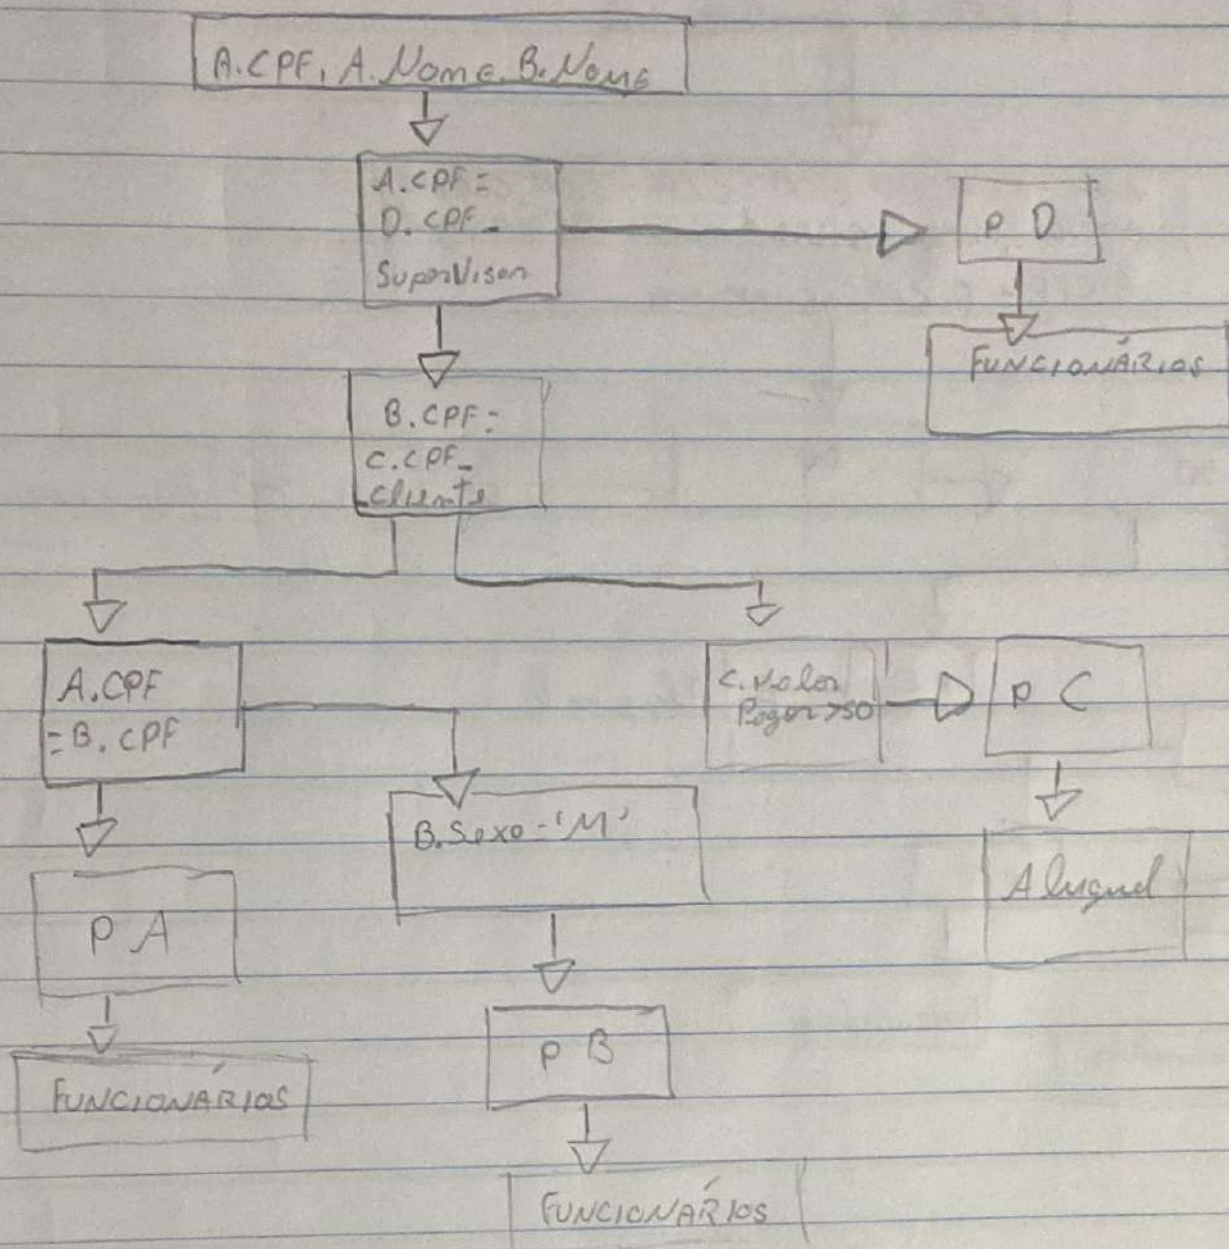 A.CPF, A.Nome, B.Nome
A.CPF=
D.CPF_
Supervisor
P D
FUNCIONÁRIOS
B.CPF=
C.CPF_
Cliente
A.CPF
=B.CPF
C.Valor
Pagar>50
P C
B.Sexo='M'
Aluguel
P A
P B
FUNCIONÁRIOS
FUNCIONÁRIOS